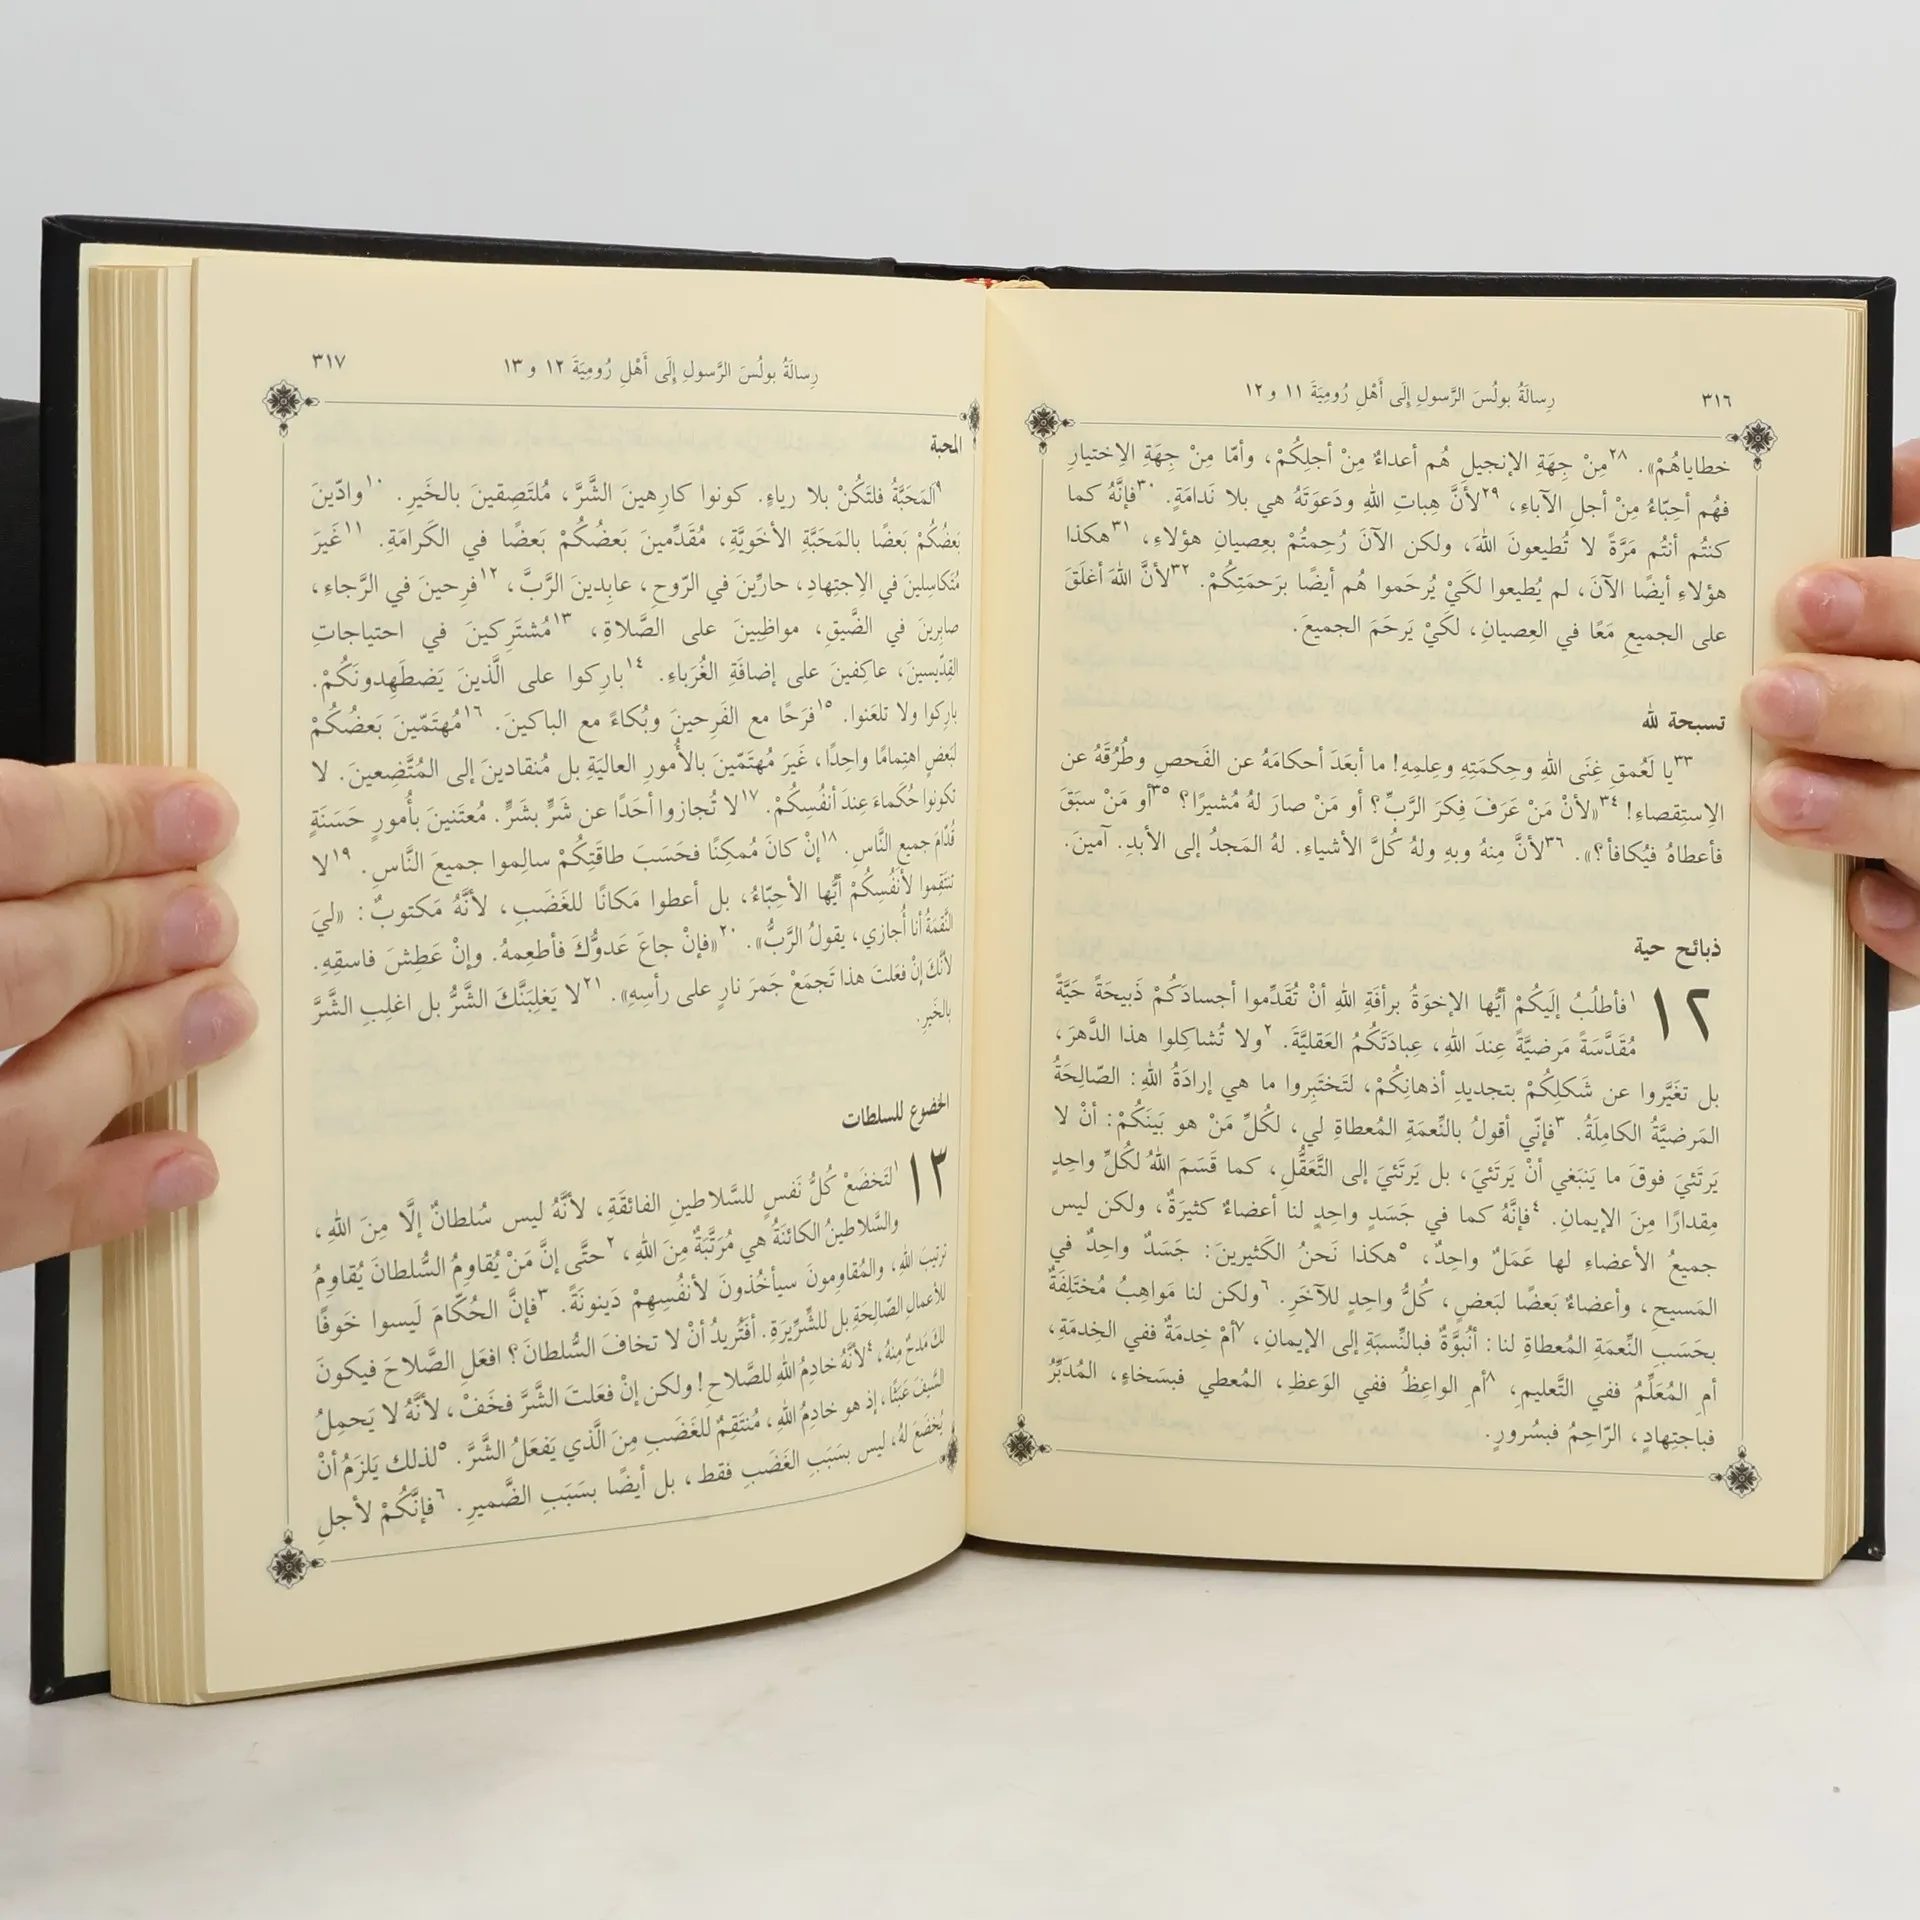 ٣١٦
رِسالَةُ بولُسَ الرَّسولِ إِلَى أَهْلِ رُومِيَةَ ١١ و ١٢
خطاياهُمْ». ٢٨مِنْ جِهَةِ الإنجيلِ هُم أعداءٌ مِنْ أجلِكُمْ، وأمّا مِنْ جِهَةِ الِاختيارِ
فهُم أحِبّاءُ مِنْ أجلِ الآباءِ، ٢٩لأنَّ هِباتِ اللهِ ودَعوَتَهُ هي بلا نَدامَةٍ. ٣٠فإنَّهُ كما
كنتُم أنتُم مَرَّةً لا تُطيعونَ اللهَ، ولكن الآنَ رُحِمتُمْ بعِصيانِ هؤلاءِ، ٣١هكذا
هؤلاءِ أيضًا الآنَ، لم يُطيعوا لكَيْ يُرحَموا هُم أيضًا برَحمَتِكُمْ. ٣٢لأنَّ اللهَ أغلَقَ
على الجميعِ مَعًا في العِصيانِ، لكَيْ يَرحَمَ الجميعَ.
تسبحة لله
٣٣يا لَعُمقِ غِنَى اللهِ وحِكمَتِهِ وعِلمِهِ! ما أبعَدَ أحكامَهُ عن الفَحصِ وطُرُقَهُ عن
الِاستِقصاءِ! ٣٤«لأنْ مَنْ عَرَفَ فِكرَ الرَّبِّ؟ أو مَنْ صارَ لهُ مُشيرًا؟ ٣٥أو مَنْ سبَقَ
فأعطاهُ فيُكافأ؟». ٣٦لأنَّ مِنهُ وبهِ ولهُ كُلَّ الأشياءِ. لهُ المَجدُ إلى الأبدِ. آمينَ.
ذبائح حية
١٢ ١فأطلُبُ إلَيكُمْ أيُّها الإخوَةُ برأفَةِ اللهِ أنْ تُقَدِّموا أجسادَكُمْ ذَبيحَةً حَيَّةً
مُقَدَّسَةً مَرضيَّةً عِندَ اللهِ، عِبادَتَكُمُ العَقليَّةَ. ٢ولا تُشاكِلوا هذا الدَّهرَ،
بل تغَيَّروا عن شَكلِكُمْ بتجديدِ أذهانِكُمْ، لتَختَبِروا ما هي إرادَةُ اللهِ: الصّالِحَةُ
المَرضيَّةُ الكامِلَةُ. ٣فإنّي أقولُ بالنِّعمَةِ المُعطاةِ لي، لكُلِّ مَنْ هو بَينَكُمْ: أنْ لا
يَرتَئيَ فوقَ ما يَنبَغي أنْ يَرتَئيَ، بل يَرتَئيَ إلى التَّعَقُّلِ، كما قَسَمَ اللهُ لكُلِّ واحِدٍ
مِقدارًا مِنَ الإيمانِ. ٤فإنَّهُ كما في جَسَدٍ واحِدٍ لنا أعضاءٌ كثيرَةٌ، ولكن ليس
جميعُ الأعضاءِ لها عَمَلٌ واحِدٌ، ٥هكذا نَحنُ الكَثيرينَ: جَسَدٌ واحِدٌ في
المَسيحِ، وأعضاءٌ بَعضًا لبَعضٍ، كُلُّ واحِدٍ للآخَرِ. ٦ولكن لنا مَواهِبُ مُختَلِفَةٌ
بحَسَبِ النِّعمَةِ المُعطاةِ لنا: أنُبوَّةٌ فبالنِّسبَةِ إلى الإيمانِ، ٧أمْ خِدمَةٌ ففي الخِدمَةِ،
أمِ المُعَلِّمُ ففي التَّعليمِ، ٨أمِ الواعِظُ ففي الوَعظِ، المُعطي فبسَخاءٍ، المُدَبِّرُ
فباجتِهادٍ، الرّاحِمُ فبسُرورٍ.
رِسالَةُ بولُسَ الرَّسولِ إِلَى أَهْلِ رُومِيَةَ ١٢ و ١٣
٣١٧
المحبة
٩اَلمَحَبَّةُ فلتَكُنْ بلا رياءٍ. كونوا كارِهينَ الشَّرَّ، مُلتَصِقينَ بالخَيرِ. ١٠وادّينَ
بَعضُكُمْ بَعضًا بالمَحَبَّةِ الأخَويَّةِ، مُقَدِّمينَ بَعضُكُمْ بَعضًا في الكَرامَةِ. ١١غَيرَ
مُتَكاسِلينَ في الِاجتِهادِ، حارّينَ في الرّوحِ، عابِدينَ الرَّبَّ، ١٢فرِحينَ في الرَّجاءِ،
صابِرينَ في الضَّيقِ، مواظِبينَ على الصَّلاةِ، ١٣مُشتَرِكينَ في احتياجاتِ
القِدّيسينَ، عاكِفينَ على إضافَةِ الغُرَباءِ. ١٤بارِكوا على الَّذينَ يَضطَهِدونَكُمْ.
بارِكوا ولا تلعَنوا. ١٥فرَحًا مع الفَرِحينَ وبُكاءً مع الباكينَ. ١٦مُهتَمّينَ بَعضُكُمْ
لبَعضٍ اهتِمامًا واحِدًا، غَيرَ مُهتَمّينَ بالأُمورِ العاليَةِ بل مُنقادينَ إلى المُتَّضِعينَ. لا
تكونوا حُكَماءَ عِندَ أنفُسِكُمْ. ١٧لا تُجازوا أحَدًا عن شَرٍّ بشَرٍّ. مُعتَنينَ بأُمورٍ حَسَنَةٍ
قُدّامَ جميعِ النَّاسِ. ١٨إنْ كانَ مُمكِنًا فحَسَبَ طاقَتِكُمْ سالِموا جميعَ النَّاسِ. ١٩لا
تنتَقِموا لأنفُسِكُمْ أيُّها الأحِبّاءُ، بل أعطوا مَكانًا للغَضَبِ، لأنَّهُ مَكتوبٌ: «ليَ
النَّقمَةُ أنا أُجازي، يقولُ الرَّبُّ». ٢٠«فإنْ جاعَ عَدوُّكَ فأطعِمهُ. وإنْ عَطِشَ فاسقِهِ.
لأنَّكَ إنْ فعَلتَ هذا تَجمَعْ جَمرَ نارٍ على رأسِهِ». ٢١لا يَغلِبَنَّكَ الشَّرُّ بل اغلِبِ الشَّرَّ
بالخَيرِ.
الخضوع للسلطات
١٣ ١لتَخضَعْ كُلُّ نَفسٍ للسَّلاطينِ الفائقَةِ، لأنَّهُ ليس سُلطانٌ إلَّا مِنَ اللهِ،
والسَّلاطينُ الكائنَةُ هي مُرَتَّبَةٌ مِنَ اللهِ، ٢حتَّى إنَّ مَنْ يُقاوِمُ السُّلطانَ يُقاوِمُ
ترتيبَ اللهِ، والمُقاوِمونَ سيأخُذونَ لأنفُسِهِمْ دَينونَةً. ٣فإنَّ الحُكّامَ لَيسوا خَوفًا
للأعمالِ الصّالِحَةِ بل للشِّرّيرَةِ. أفَتُريدُ أنْ لا تخافَ السُّلطانَ؟ افعَلِ الصَّلاحَ فيكونَ
لكَ مَدحٌ مِنهُ، ٤لأنَّهُ خادِمُ اللهِ للصَّلاحِ! ولكن إنْ فعَلتَ الشَّرَّ فخَفْ، لأنَّهُ لا يَحمِلُ
السَّيفَ عَبَثًا، إذ هو خادِمُ اللهِ، مُنتَقِمٌ للغَضَبِ مِنَ الَّذي يَفعَلُ الشَّرَّ. ٥لذلك يَلزَمُ أنْ
يُخضَعَ لهُ، ليس بسَبَبِ الغَضَبِ فقط، بل أيضًا بسَبَبِ الضَّميرِ. ٦فإنَّكُمْ لأجلِ